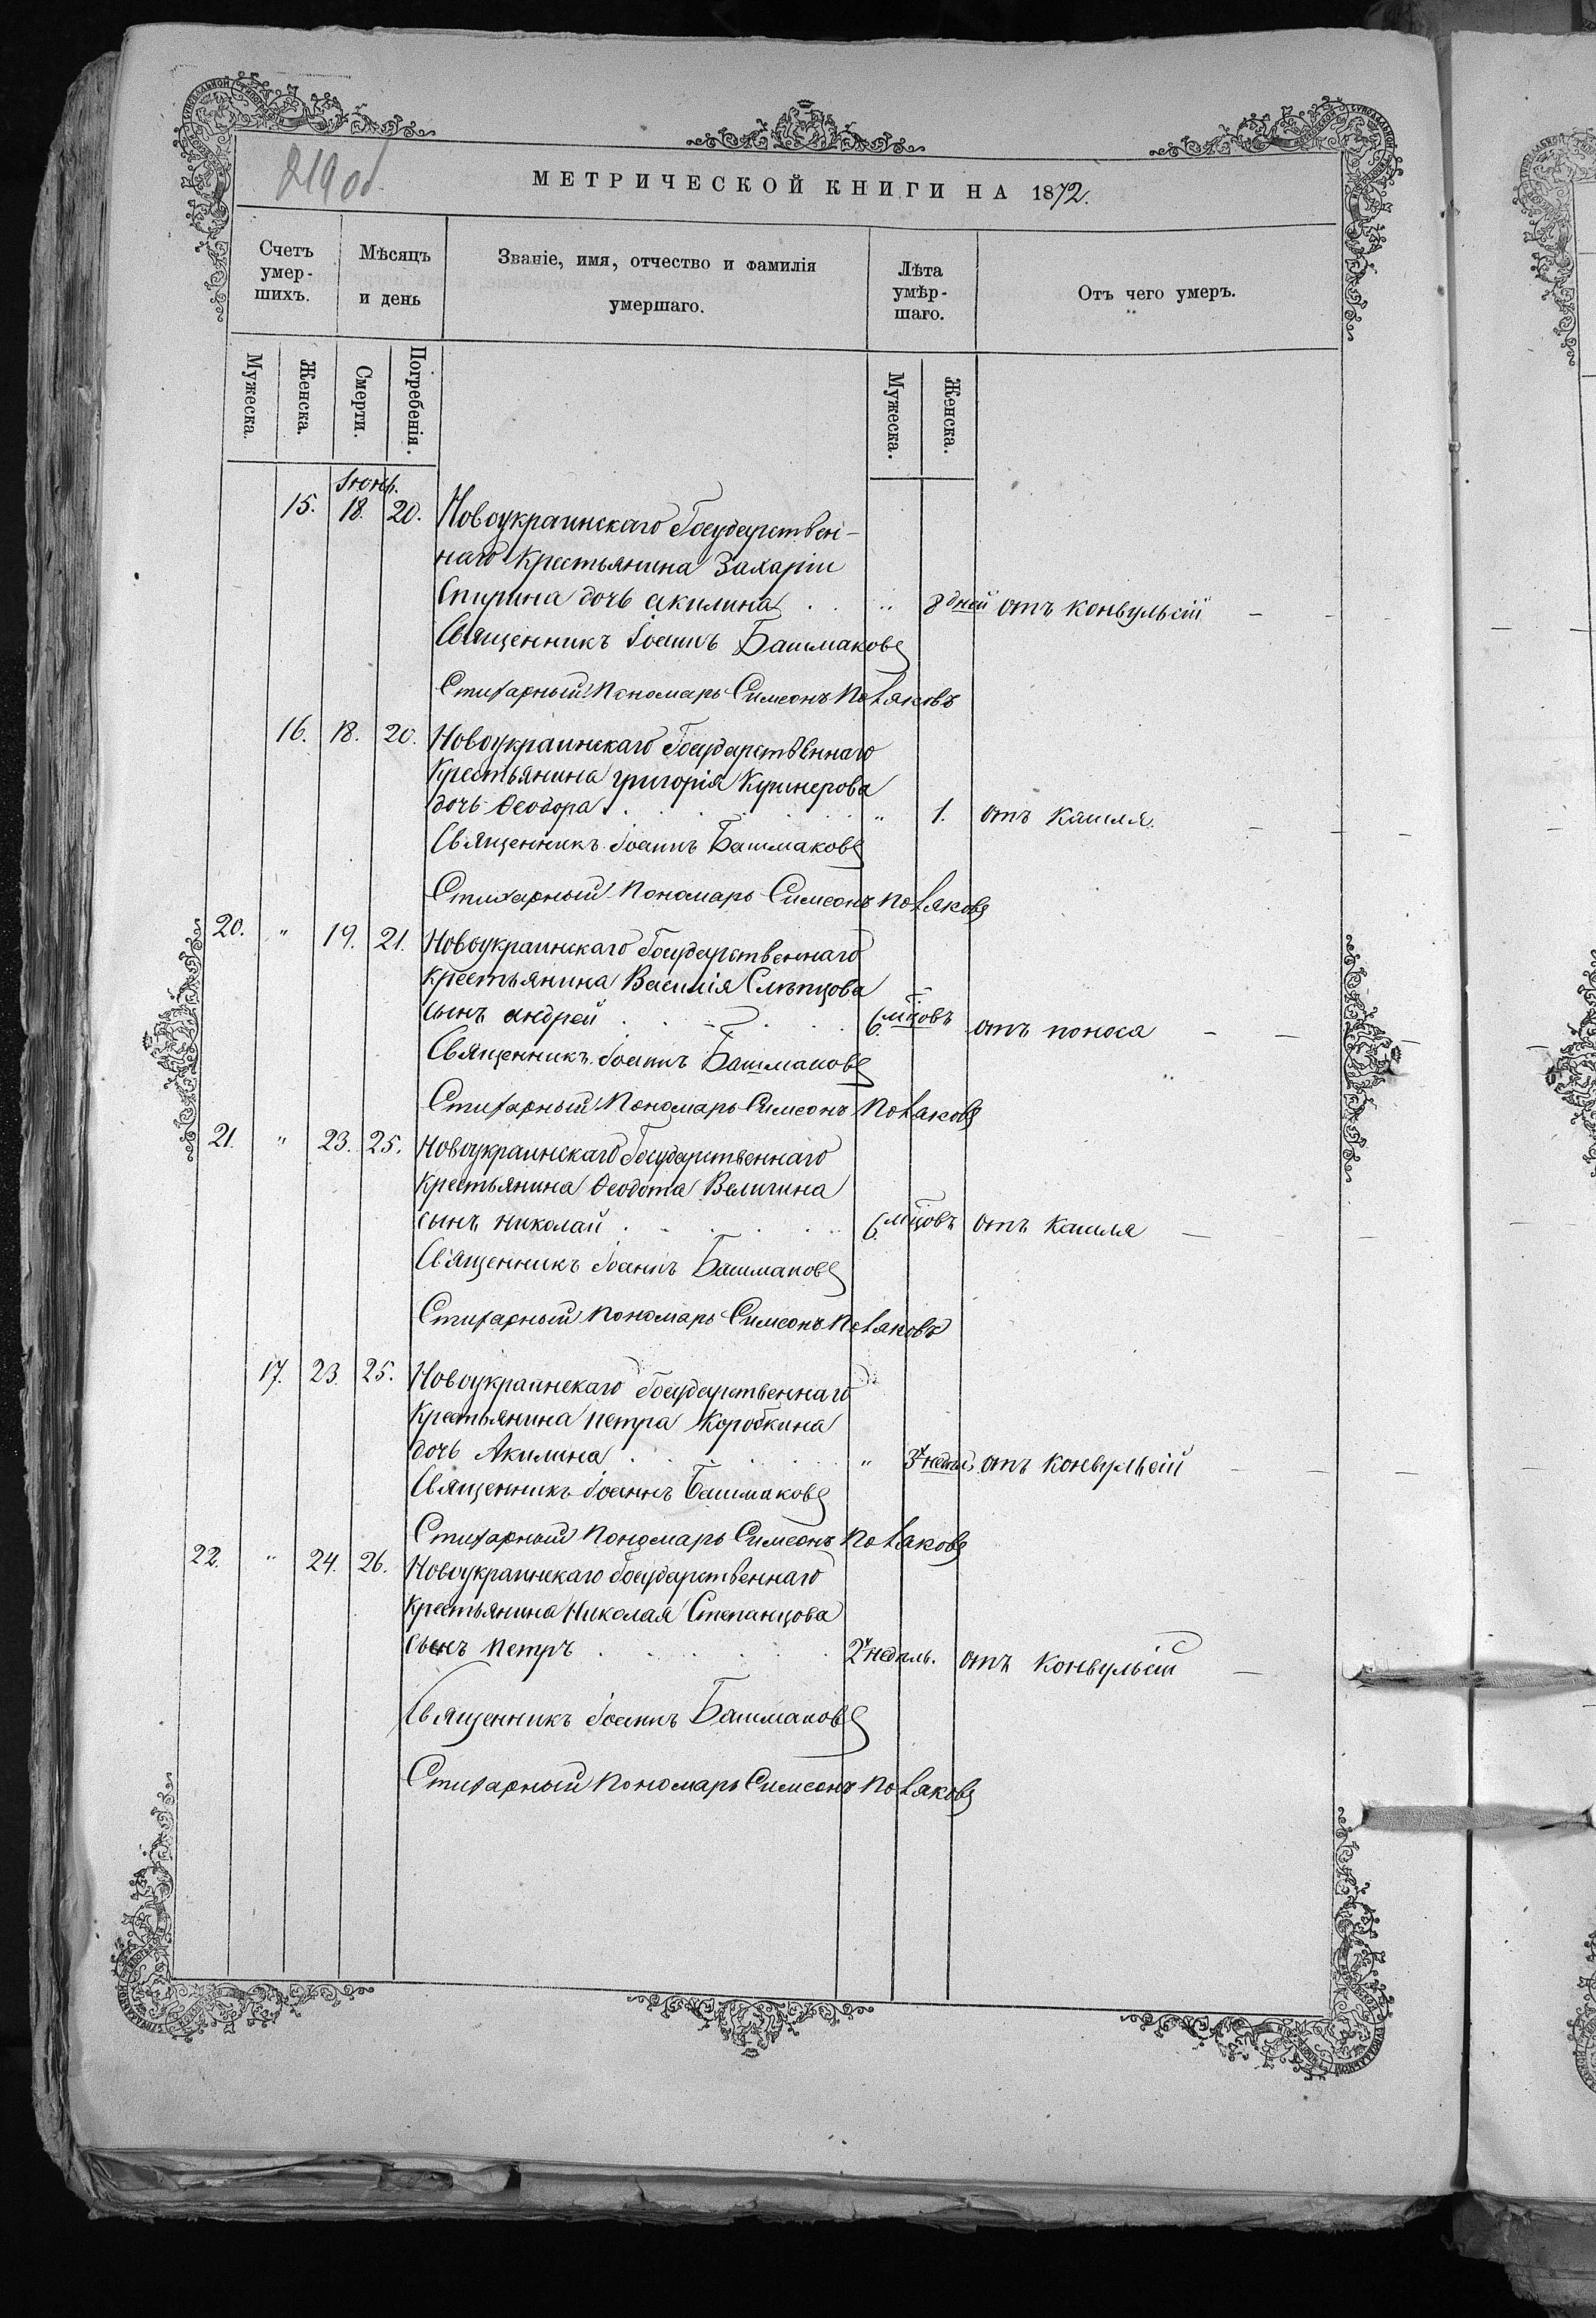 219 об.
МЕТРИЧЕСКОЙ КНИГИ НА 1872.
Счетъ умер-шихъ.
Мѣсяцъ и день
Званіе, имя, отчество и фамилія умершаго.
Лѣта умѣр-шаго.
Отъ чего умеръ.
Мужеска.
Женска.
Смерти.
Погребенія.
Мужеска.
Женска.
Іюнь.
15. 18. 20. Новоукраинскаго Государствен-
наго Крестьянина Захаріи
Спирина дочь Акилина . . " 8 дней отъ конвульсій
Священникъ Іоаннъ Башмаковъ
Стихарный Пономарь Симеонъ Поляковъ
16. 18. 20. Новоукраинскаго Государственнаго
Крестьянина Григорія Кушнерова
дочь Ѳеодора . . . . . " 1. отъ кашля.
Священникъ Іоаннъ Башмаковъ
Стихарный Пономарь Симеонъ Поляковъ
20. " 19. 21. Новоукраинскаго Государственнаго
Крестьянина Василія Слѣпцова
сынъ Андрей . . . . . 6. мцовъ отъ поноса
Священникъ Іоаннъ Башмаковъ
Стихарный Пономарь Симеонъ Поляковъ
21. " 23. 25. Новоукраинскаго Государственнаго
Крестьянина Ѳеодота Величина
сынъ Николай . . . . . 6. мцовъ отъ кашля
Священникъ Іоаннъ Башмаковъ
Стихарный Пономарь Симеонъ Поляковъ
17. 23. 25. Новоукраинскаго Государственнаго
Крестьянина Петра Коробкина
дочь Акилина . . . . . " 3х недѣль отъ конвульсій
Священникъ Іоаннъ Башмаковъ
Стихарный Пономарь Симеонъ Поляковъ
22. " 24. 26. Новоукраинскаго Государственнаго
Крестьянина Николая Степанцова
сынъ Петръ . . . . . 2х недѣль. отъ конвульсій
Священникъ Іоаннъ Башмаковъ
Стихарный Пономарь Симеонъ Поляковъ